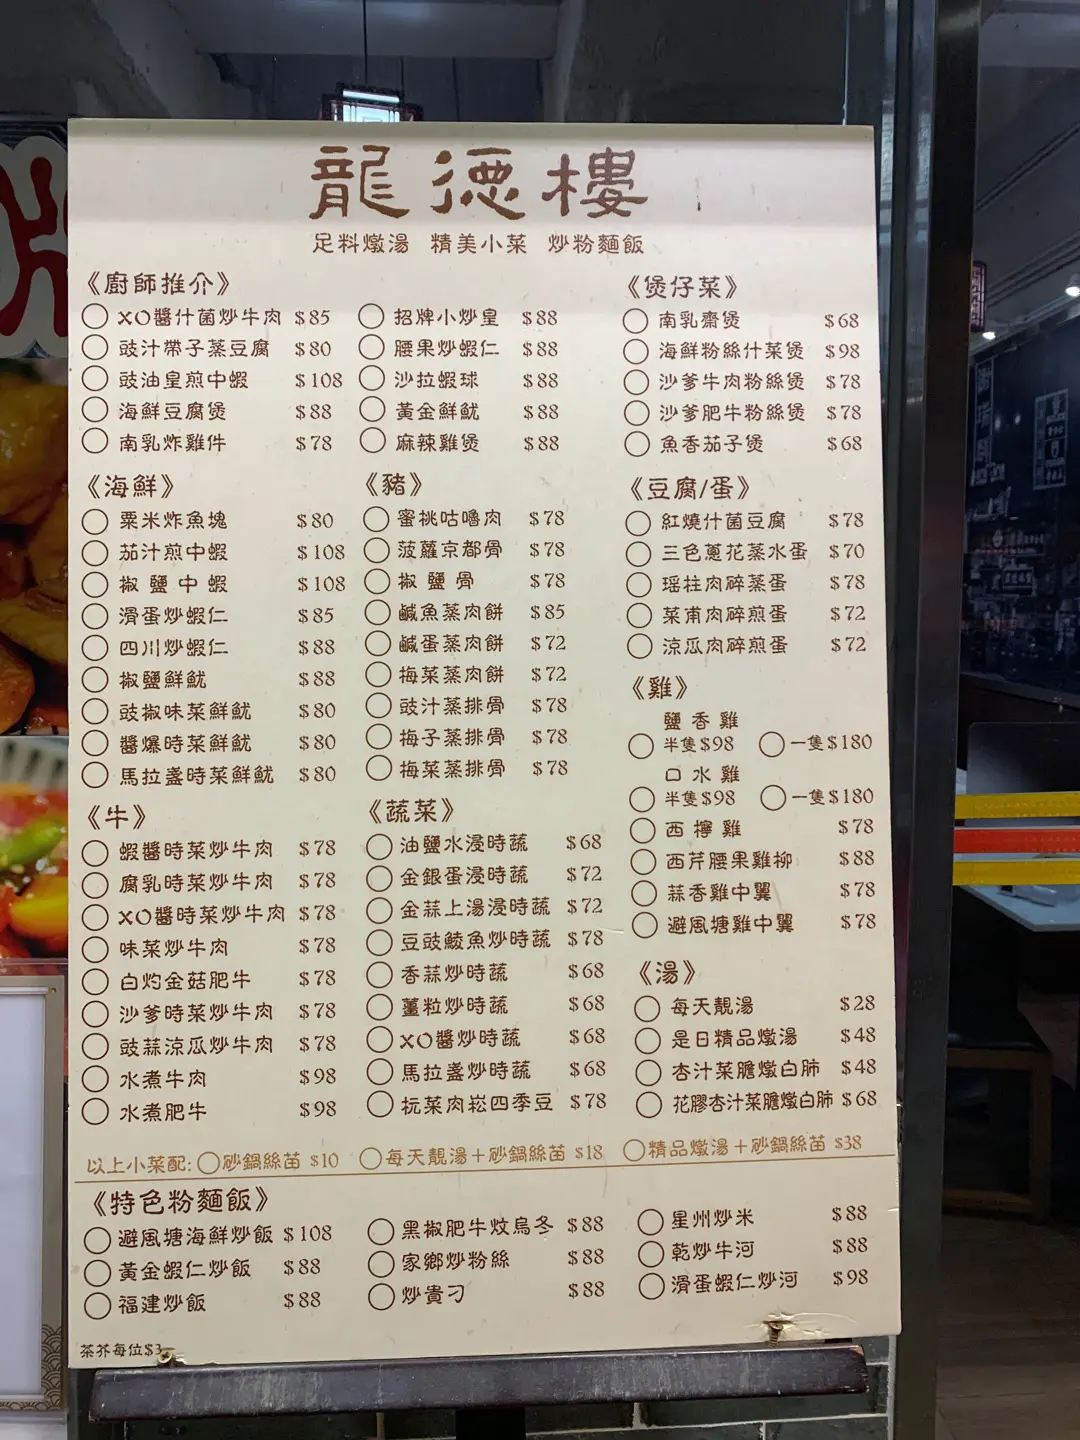 龍德樓
足料燉湯 精美小菜 炒粉麵飯
《廚師推介》
XO醬什菌炒牛肉 $85
豉汁帶子蒸豆腐 $80
豉油皇煎中蝦 $108
海鮮豆腐煲 $88
南乳炸雞件 $78
招牌小炒皇 $88
腰果炒蝦仁 $88
沙拉蝦球 $88
黃金鮮魷 $88
麻辣雞煲 $88
《煲仔菜》
南乳齋煲 $68
海鮮粉絲什菜煲 $98
沙爹牛肉粉絲煲 $78
沙爹肥牛粉絲煲 $78
魚香茄子煲 $68
《海鮮》
粟米炸魚塊 $80
茄汁煎中蝦 $108
椒鹽中蝦 $108
滑蛋炒蝦仁 $85
四川炒蝦仁 $88
椒鹽鮮魷 $88
豉椒味菜鮮魷 $80
醬爆時菜鮮魷 $80
馬拉盞時菜鮮魷 $80
《豬》
蜜桃咕嚕肉 $78
菠蘿京都骨 $78
椒鹽骨 $78
鹹魚蒸肉餅 $85
鹹蛋蒸肉餅 $72
梅菜蒸肉餅 $72
豉汁蒸排骨 $78
梅子蒸排骨 $78
梅菜蒸排骨 $78
《豆腐/蛋》
紅燒什菌豆腐 $78
三色蔥花蒸水蛋 $70
瑶柱肉碎蒸蛋 $78
菜甫肉碎煎蛋 $72
涼瓜肉碎煎蛋 $72
《雞》
鹽香雞
半隻$98 一隻$180
口水雞
半隻$98 一隻$180
西檸雞 $78
西芹腰果雞柳 $88
蒜香雞中翼 $78
避風塘雞中翼 $78
《牛》
蝦醬時菜炒牛肉 $78
腐乳時菜炒牛肉 $78
XO醬時菜炒牛肉 $78
味菜炒牛肉 $78
白灼金菇肥牛 $78
沙爹時菜炒牛肉 $78
豉蒜涼瓜炒牛肉 $78
水煮牛肉 $98
水煮肥牛 $98
《蔬菜》
油鹽水浸時蔬 $68
金銀蛋浸時蔬 $72
金蒜上湯浸時蔬 $72
豆豉鯪魚炒時蔬 $78
香蒜炒時蔬 $68
薑粒炒時蔬 $68
XO醬炒時蔬 $68
馬拉盞炒時蔬 $68
杬菜肉崧四季豆 $78
《湯》
每天靚湯 $28
是日精品燉湯 $48
杏汁菜膽燉白肺 $48
花膠杏汁菜膽燉白肺 $68
以上小菜配: 砂鍋絲苗 $10 每天靚湯+砂鍋絲苗 $18 精品燉湯+砂鍋絲苗 $38
《特色粉麵飯》
避風塘海鮮炒飯 $108
黃金蝦仁炒飯 $88
福建炒飯 $88
黑椒肥牛炆烏冬 $88
家鄉炒粉絲 $88
炒貴刁 $88
星州炒米 $88
乾炒牛河 $88
滑蛋蝦仁炒河 $98
茶芥每位$3